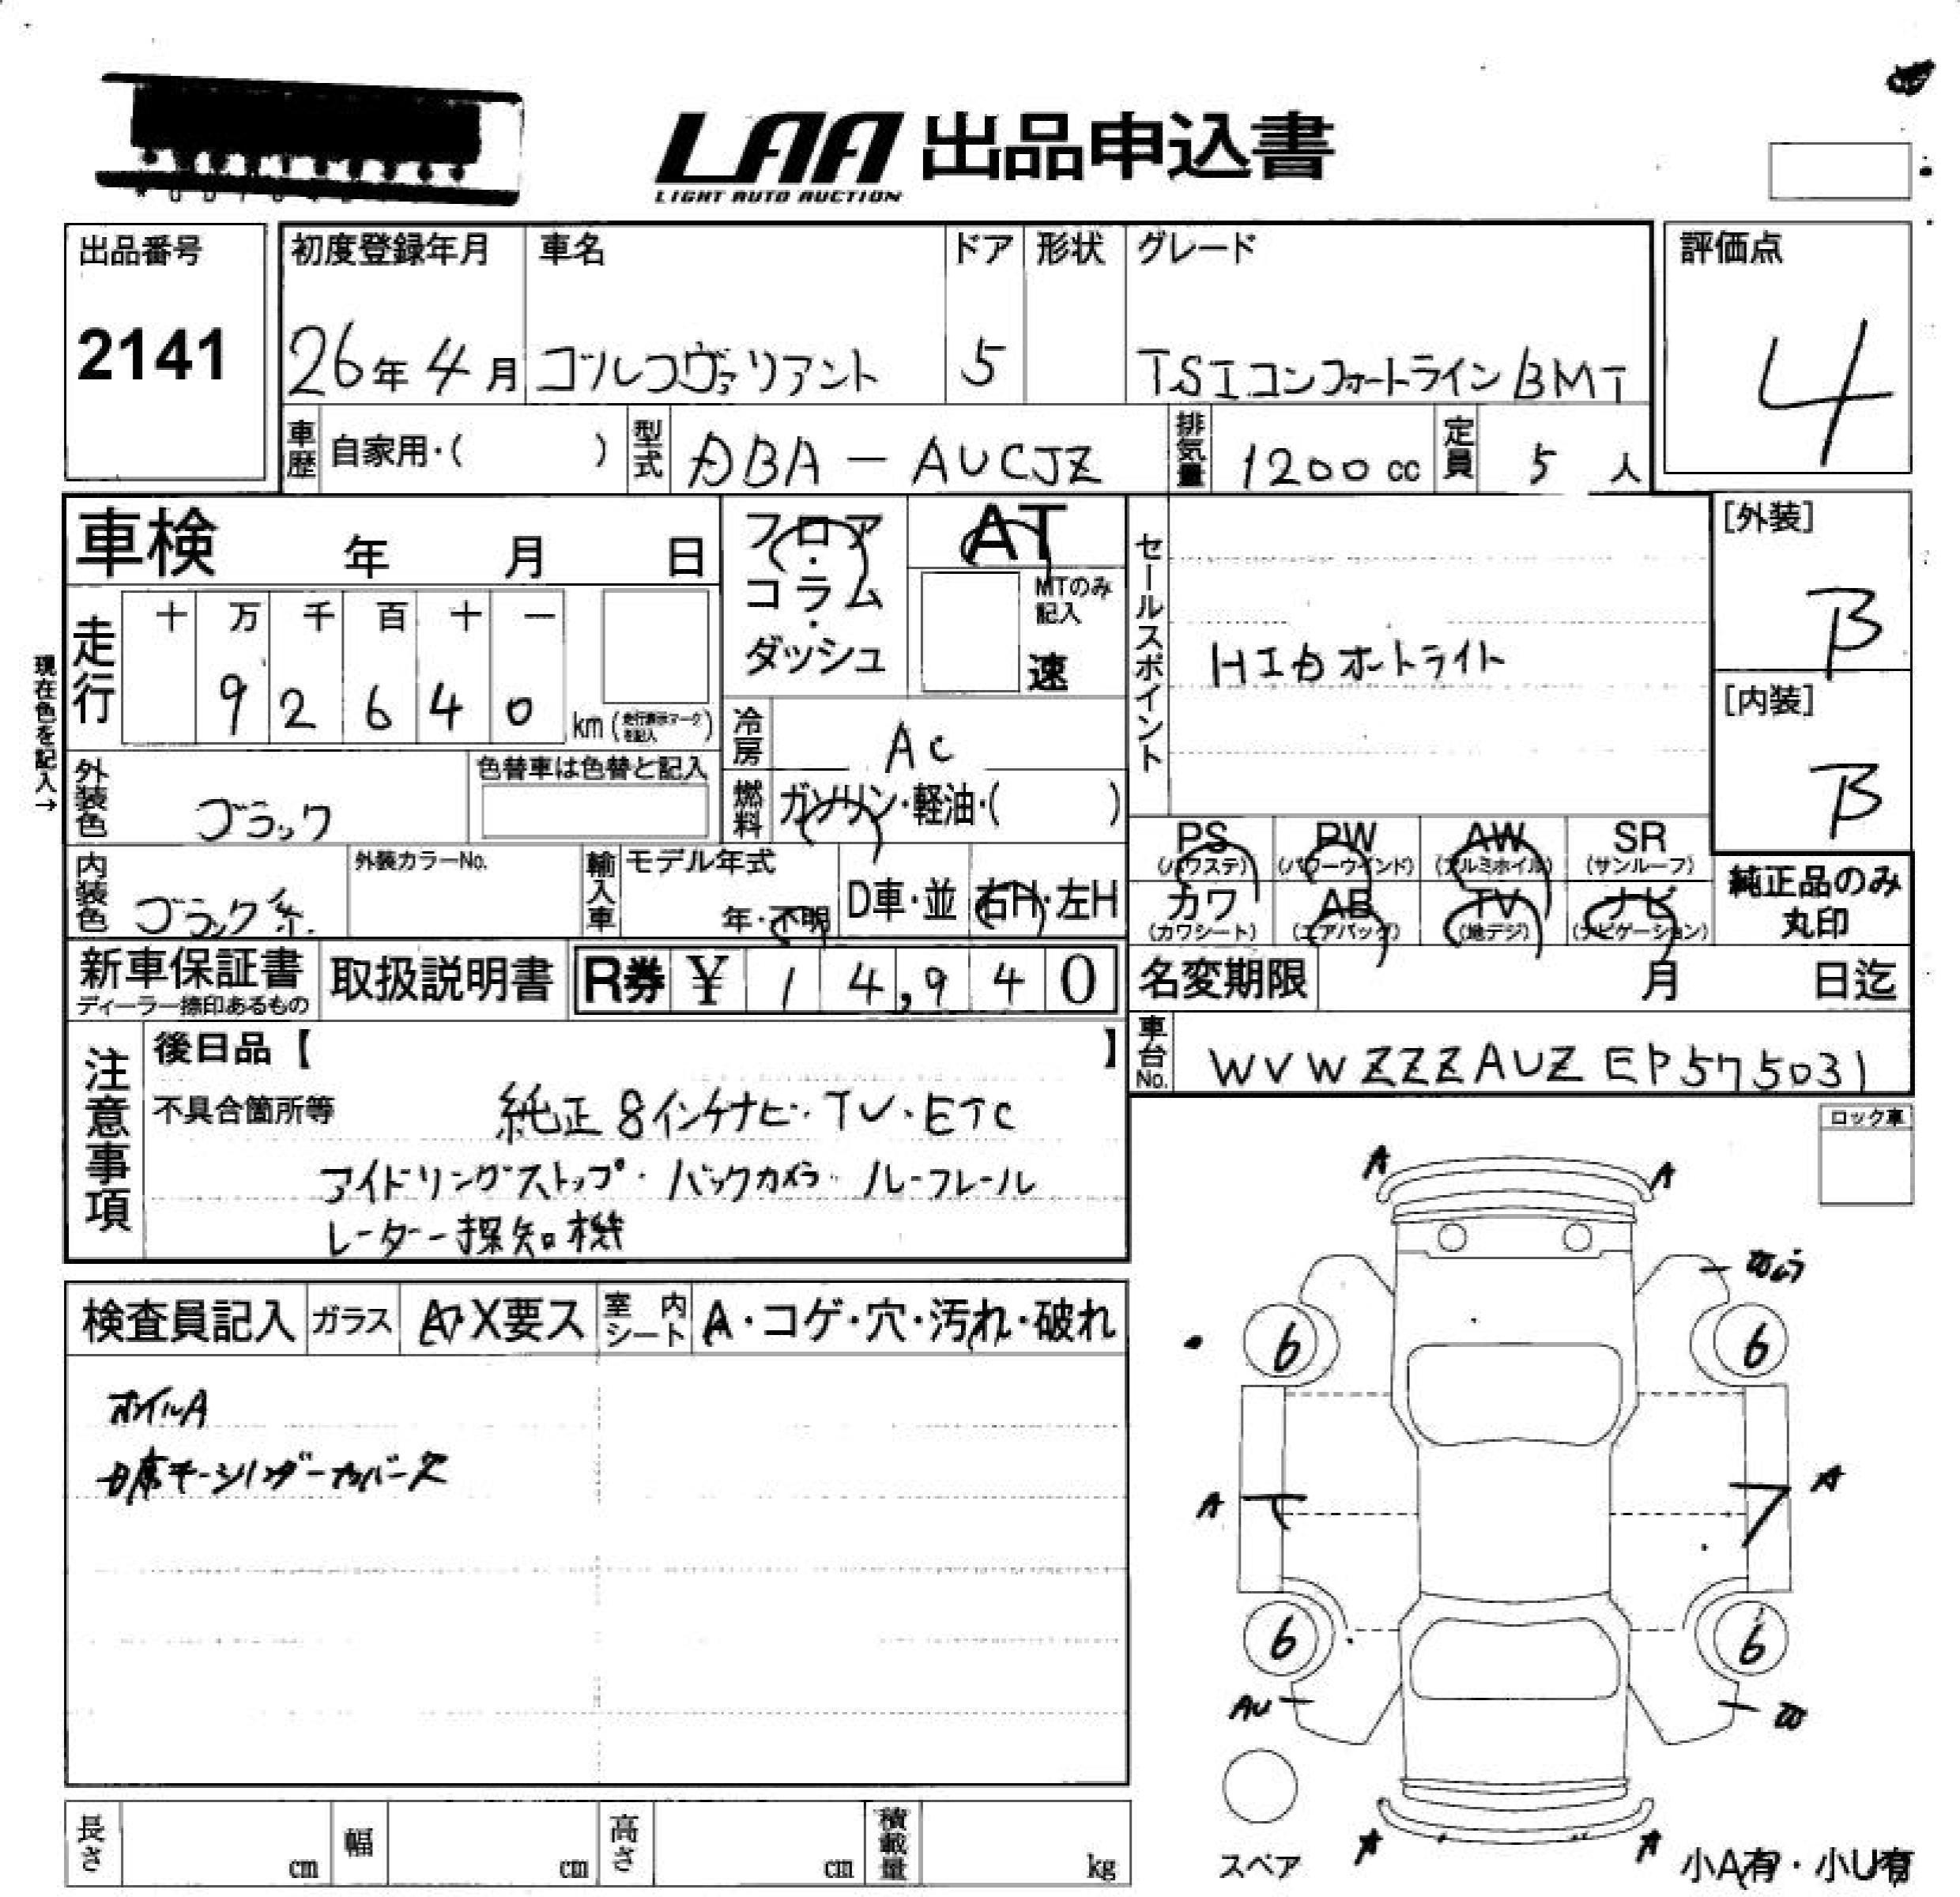 LAA 出品申込書
LIGHT AUTO AUCTION
出品番号
2141
初度登録年月
26年 4月
車名
ゴルフヴァリアント
ドア
5
形状
グレード
TSIコンフォートラインBMT
評価点
4
車歴 自家用・( )
型式 DBA-AUCJZ
排気量 1200cc
定員 5 人
車検 年 月 日
走行 十 万 千 百 十 一
9 2 6 4 0
km (走行表示マークを記入)
現在色を記入→
フロア・コラム・ダッシュ
AT
MTのみ記入
速
冷房 AC
燃料 ガソリン・軽油・( )
セールスポイント
HIDオートライト
[外装]
B
[内装]
B
外装色 ブラック
色替車は色替と記入
内装色 ブラック系
外装カラーNo.
輸入車 モデル年式
年・不明
D車・並
右H・左H
PS (パワステ)
PW (パワーウインド)
AW (アルミホイル)
SR (サンルーフ)
カワ (カワシート)
AB (エアバッグ)
TV (地デジ)
ナビ (ナビゲーション)
純正品のみ丸印
新車保証書
ディーラー捺印あるもの
取扱説明書
R券 ¥ 14,940
名変期限 月 日迄
車台No. WVWZZZAUZEP575031
注意事項
後日品【 】
不具合箇所等
純正8インチナビ・TV・ETC
アイドリングストップ・バックカメラ・ルーフレール
レーダー探知機
ロック車
検査員記入
ガラス A・X要ス
室内シート A・コゲ・穴・汚れ・破れ
ホイルA
A A
6 6
A A
6 6
AU
スペア
A A
小A有・小U有
長さ cm
幅 cm
高さ cm
積載量 kg